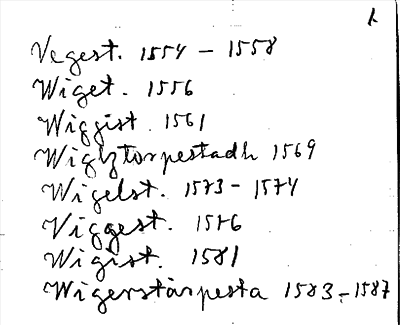 1.
Vegest. 1554 – 1558
Wiget. 1556
Wiggist. 1561
Wiglztorpestadh 1569
Wigelst. 1573 – 1574
Viggest. 1576
Wigist. 1581
Wigerstårpesta 1583 – 1587